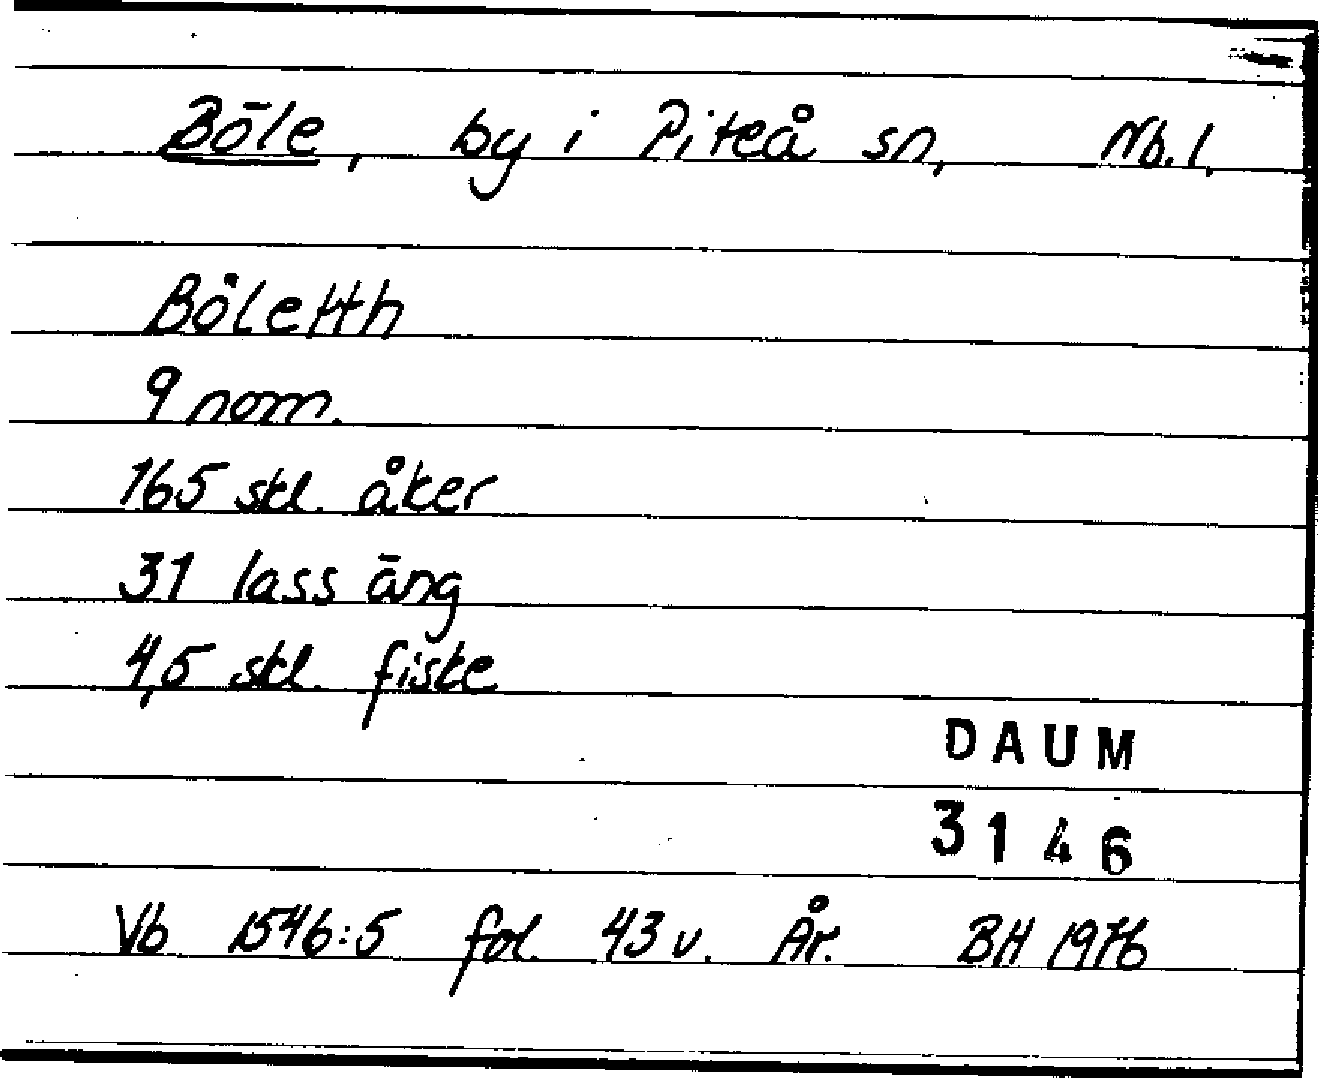 Böle, by i Piteå sn, Nb. l.
Böletth
9 nom.
165 skl. åker
31 lass äng
4,5 skl. fiske
DAUM
3146
Vb 1546:5 fol. 43 v. År. BH 1976